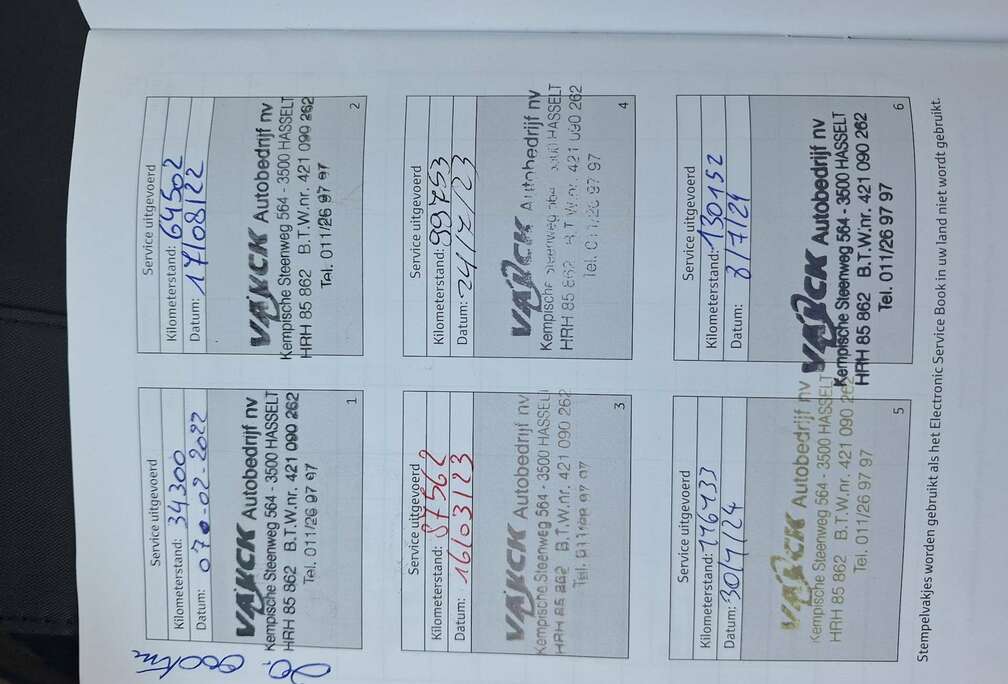 Service uitgevoerd
Kilometerstand: 34300
Datum: 07-02-2022
VANCK Autobedrijf nv
Kempische Steenweg 564 - 3500 HASSELT
HRH 85 862 B.T.W.nr. 421 090 262
Tel. 011/26 97 97
1
Service uitgevoerd
Kilometerstand: 64502
Datum: 17/08/22
VANCK Autobedrijf nv
Kempische Steenweg 564 - 3500 HASSELT
HRH 85 862 B.T.W.nr. 421 090 262
Tel. 011/26 97 97
2
Service uitgevoerd
Kilometerstand: 87562
Datum: 16/03/23
VANCK Autobedrijf nv
Kempische Steenweg 564 - 3500 HASSELT
HRH 85 862 B.T.W.nr. 421 090 262
Tel. 011/26 97 97
3
Service uitgevoerd
Kilometerstand: 99753
Datum: 24/7/23
VANCK Autobedrijf nv
Kempische Steenweg 3500 HASSELT
HRH 85 862 B.T.W.nr. 421 090 262
Tel. 011/26 97 97
4
Service uitgevoerd
Kilometerstand: 116433
Datum: 30/1/24
VANCK Autobedrijf nv
Kempische Steenweg 564 - 3500 HASSELT
HRH 85 862 B.T.W.nr. 421 090 262
Tel. 011/26 97 97
5
Service uitgevoerd
Kilometerstand: 130152
Datum: 3/7/24
VANCK Autobedrijf nv
Kempische Steenweg 564 - 3500 HASSELT
HRH 85 862 B.T.W.nr. 421 090 262
Tel. 011/26 97 97
6
Stempelvakjes worden gebruikt als het Electronic Service Book in uw land niet wordt gebruikt.